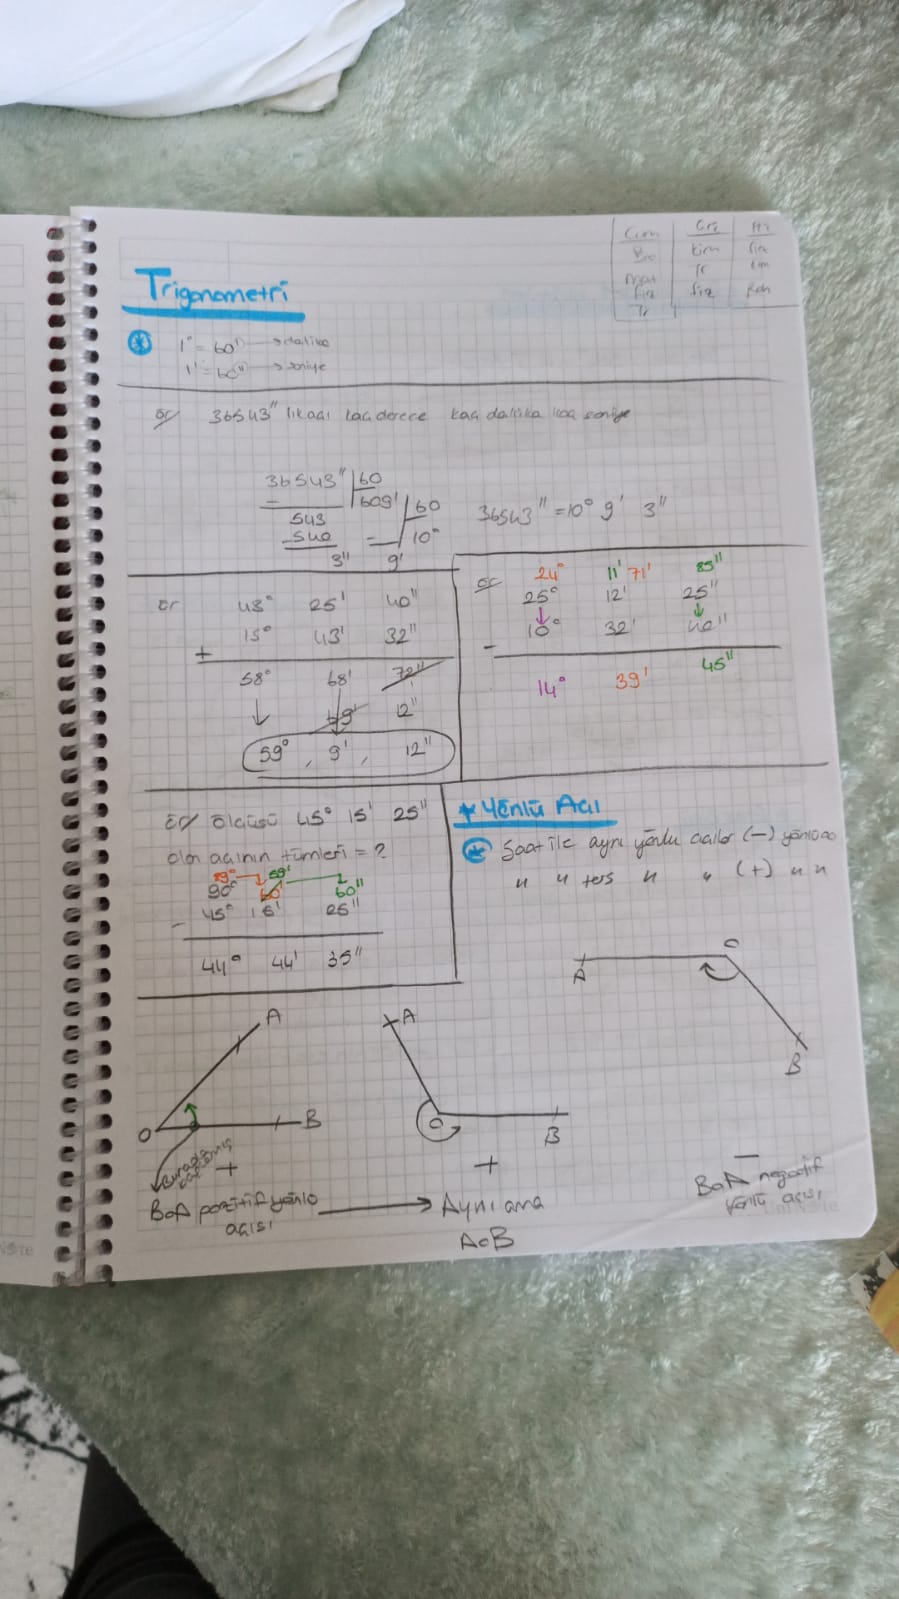 Cum Crş Pt
Bio Kim Fiz
Tr Kim
Mat
Fiz Fiz
Tr
Trigonometri
1° = 60' → dakika
1' = 60'' → saniye
ör/ 36543'' lik açı kaç derece kaç dakika kaç saniye
36543'' | 60
609' | 60
543
540
10°
3'' 9'
36543'' = 10° 9' 3''
ör
43° 25' 40''
+ 15° 43' 32''
58° 68' 72''
69' 12''
59°, 9', 12''
ör
24° 11' 71' 85''
25° 12' 25''
- 10° 32' 40''
14° 39' 45''
ör/ ölçüsü 45° 15' 25''
olan açının tümleri = ?
89° 59'
90° 60' 60''
- 45° 15' 25''
44° 44' 35''
★ Yönlü Açı
Saat ile aynı yönlü açılar (-) yönlü
'' '' ters '' '' (+) '' ''
A O
B
A
O B
+
BOA pozitif yönlü açısı
A
O
B
+
→ Aynı ama
AOB
-
BOA negatif
yönlü açısı
UniNote